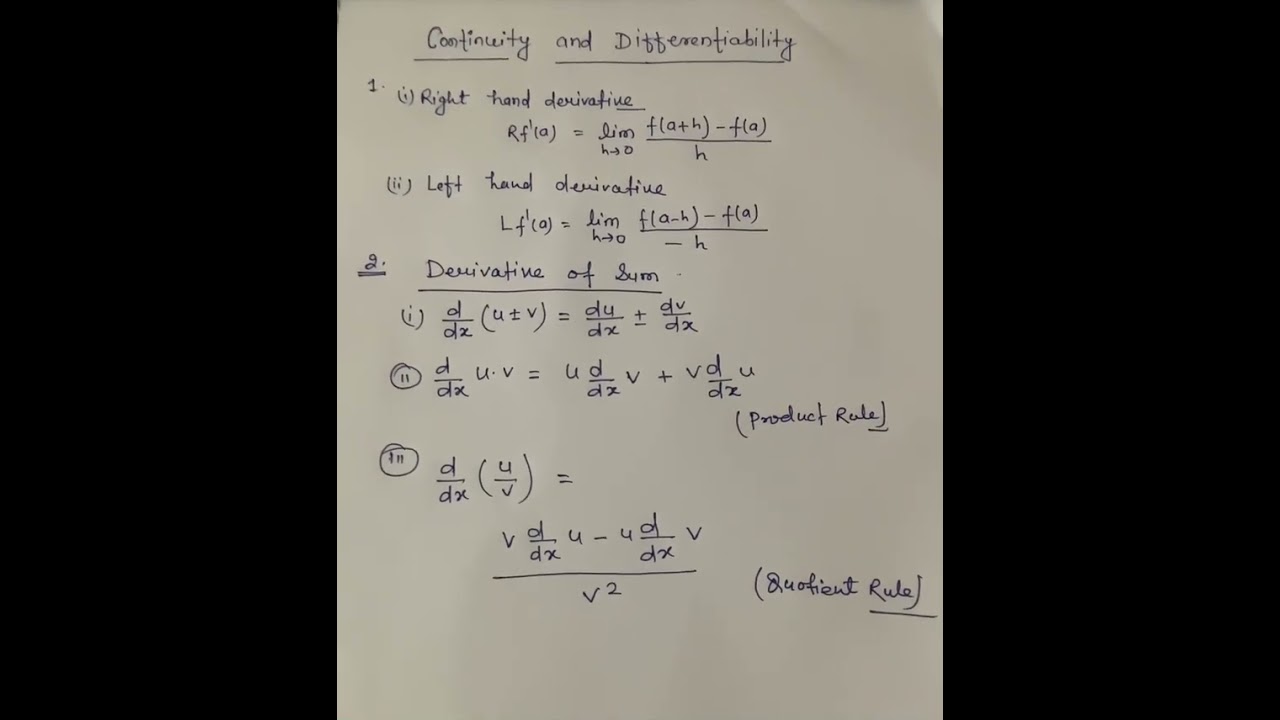 Continuity and Differentiability
1. (i) Right hand derivative
Rf'(a) = lim h→0 (f(a+h) - f(a))/h
(ii) Left hand derivative
Lf'(a) = lim h→0 (f(a-h) - f(a))/(-h)
2. Derivative of Sum
(i) d/dx (u ± v) = du/dx ± dv/dx
(ii) d/dx u·v = u d/dx v + v d/dx u
(Product Rule)
(iii) d/dx (u/v) =
(v d/dx u - u d/dx v)/v²
(Quotient Rule)